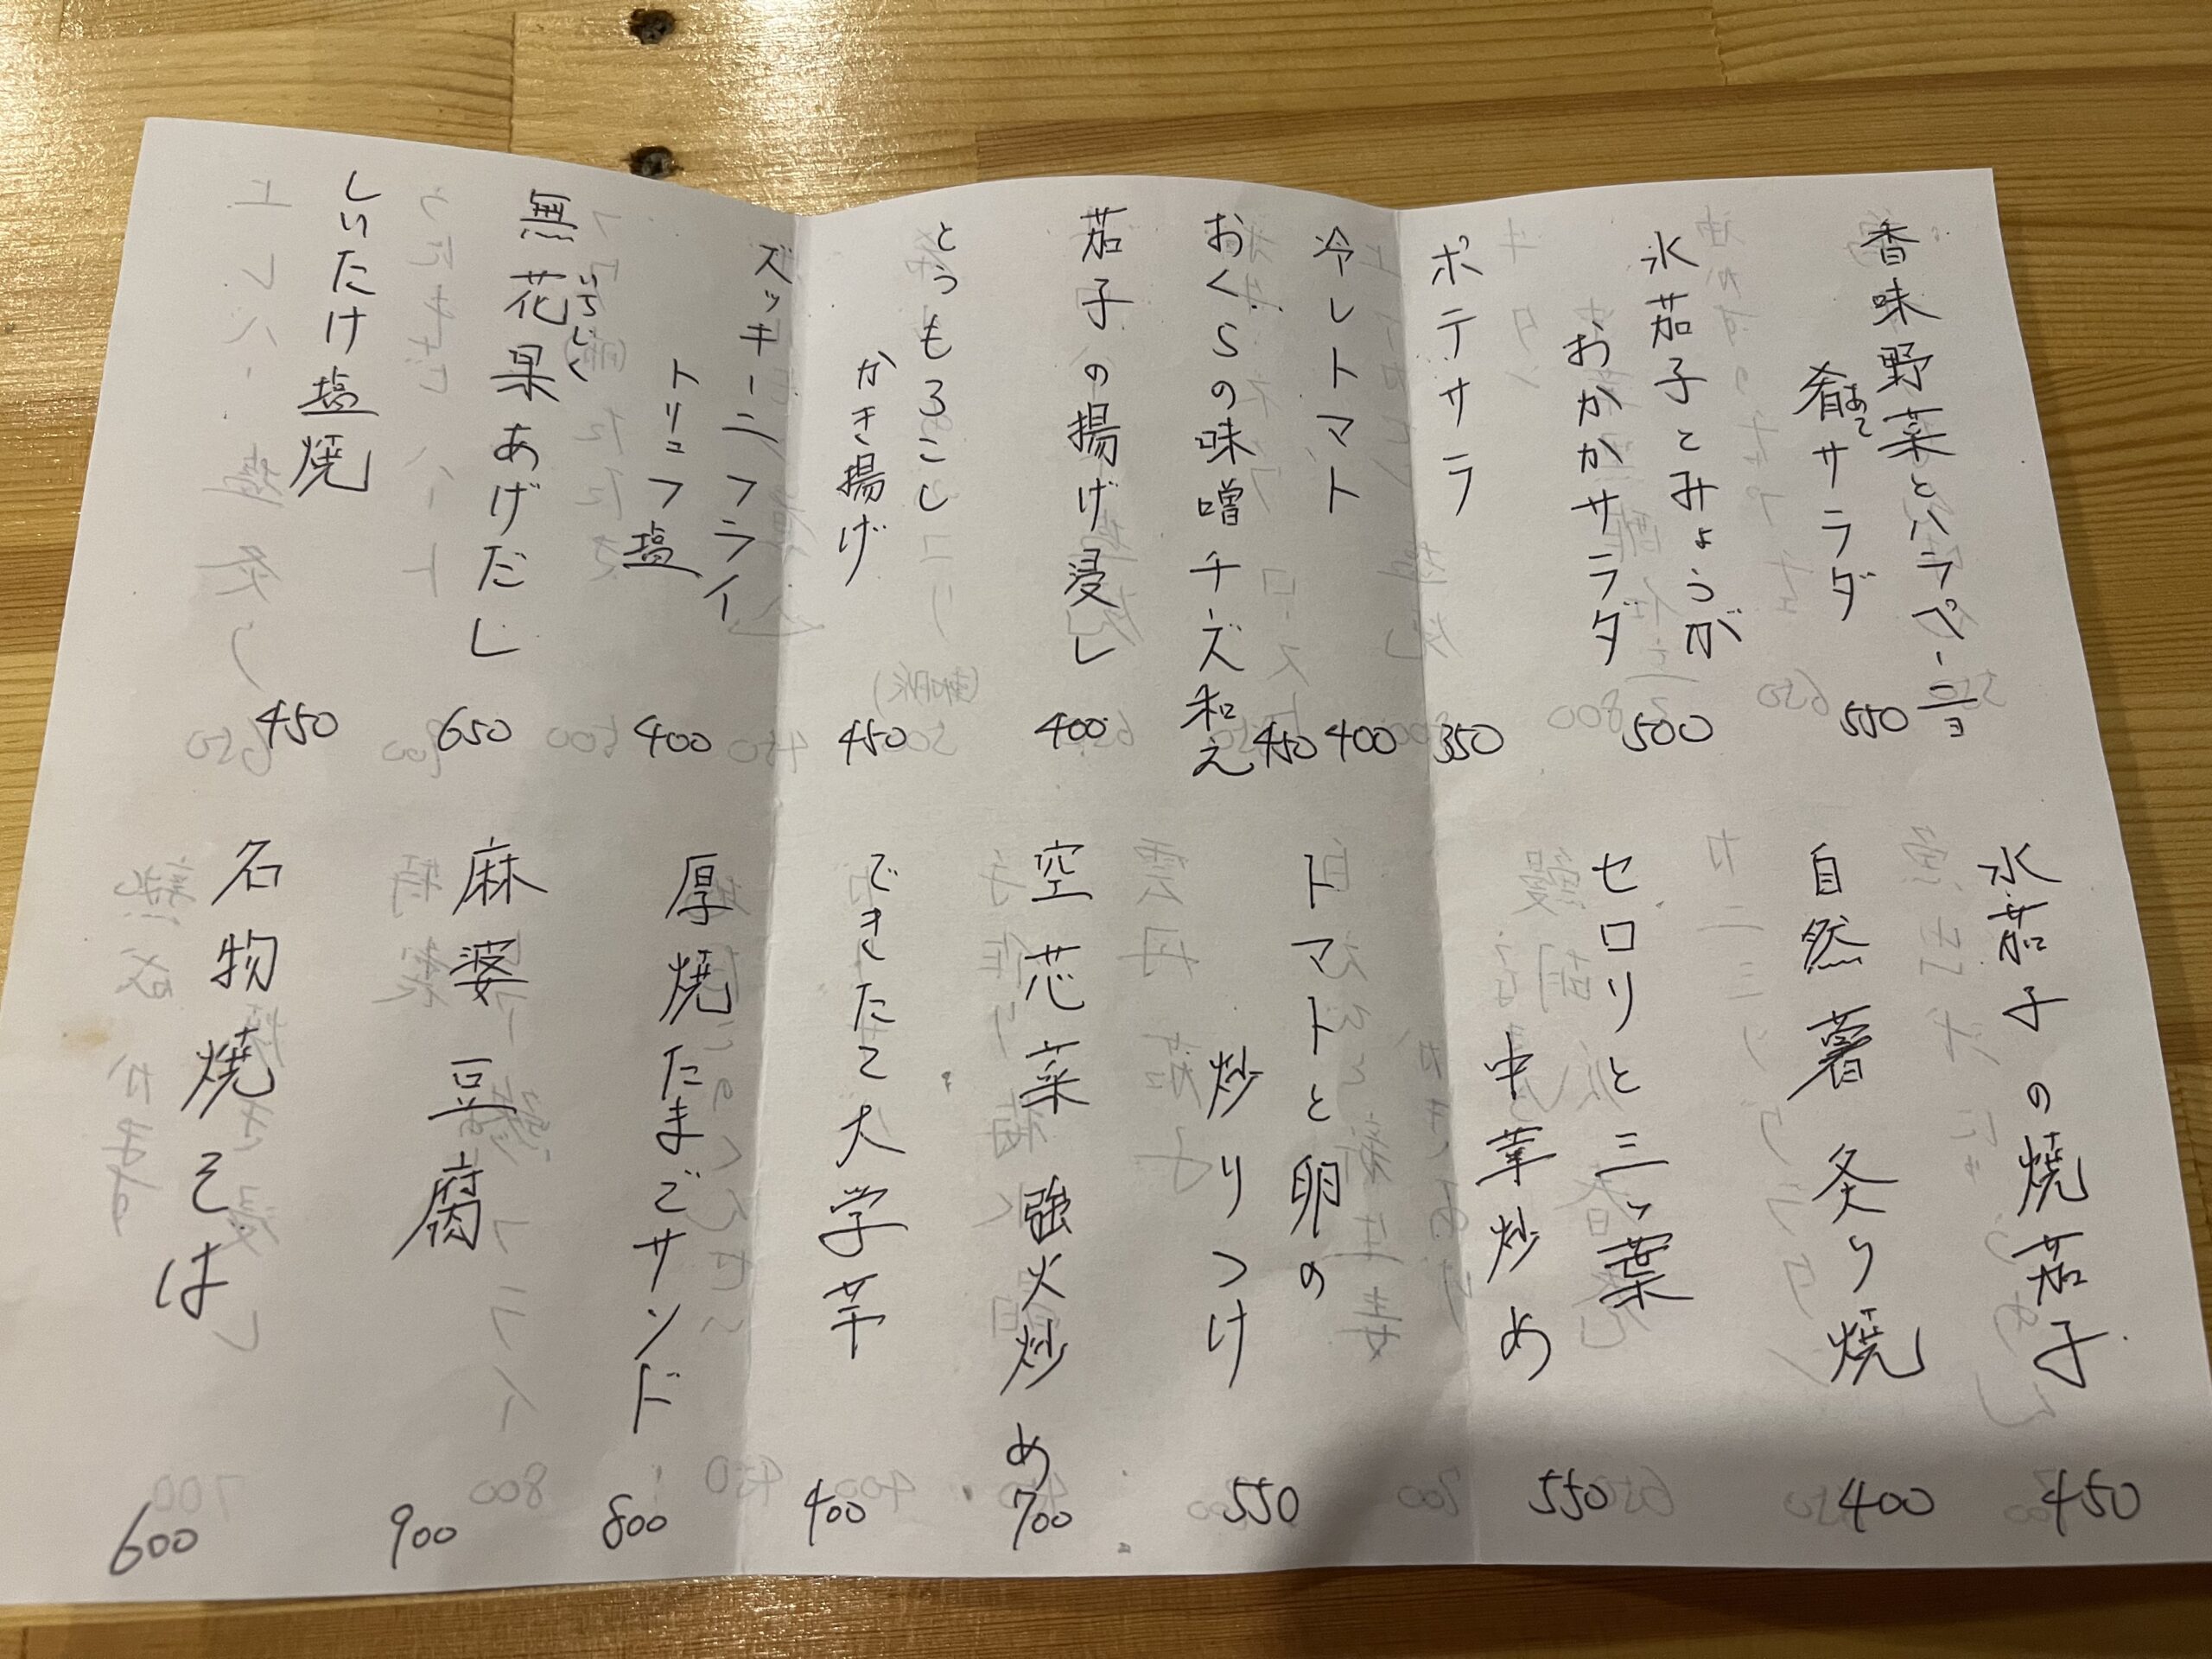 香味野菜とハラペーニョ
肴サラダ
あて
550
水茄子とみょうが
おかかサラダ
500
ポテサラ
350
冷しトマト
400
おくらの味噌チーズ和え
450
茄子の揚げ浸し
400
とうもろこし
かき揚げ
450
ズッキーニフライ
トリュフ塩
400
無花果あげだし
いちじく
650
しいたけ塩焼
450
水茄子の焼茄子
450
自然薯炙り焼
400
セロリと三ッ葉
中華炒め
550
トマトと卵の
炒りつけ
550
空芯菜強火炒め
700
できたて大学芋
400
厚焼たまごサンド
800
麻婆豆腐
900
名物焼そば
600